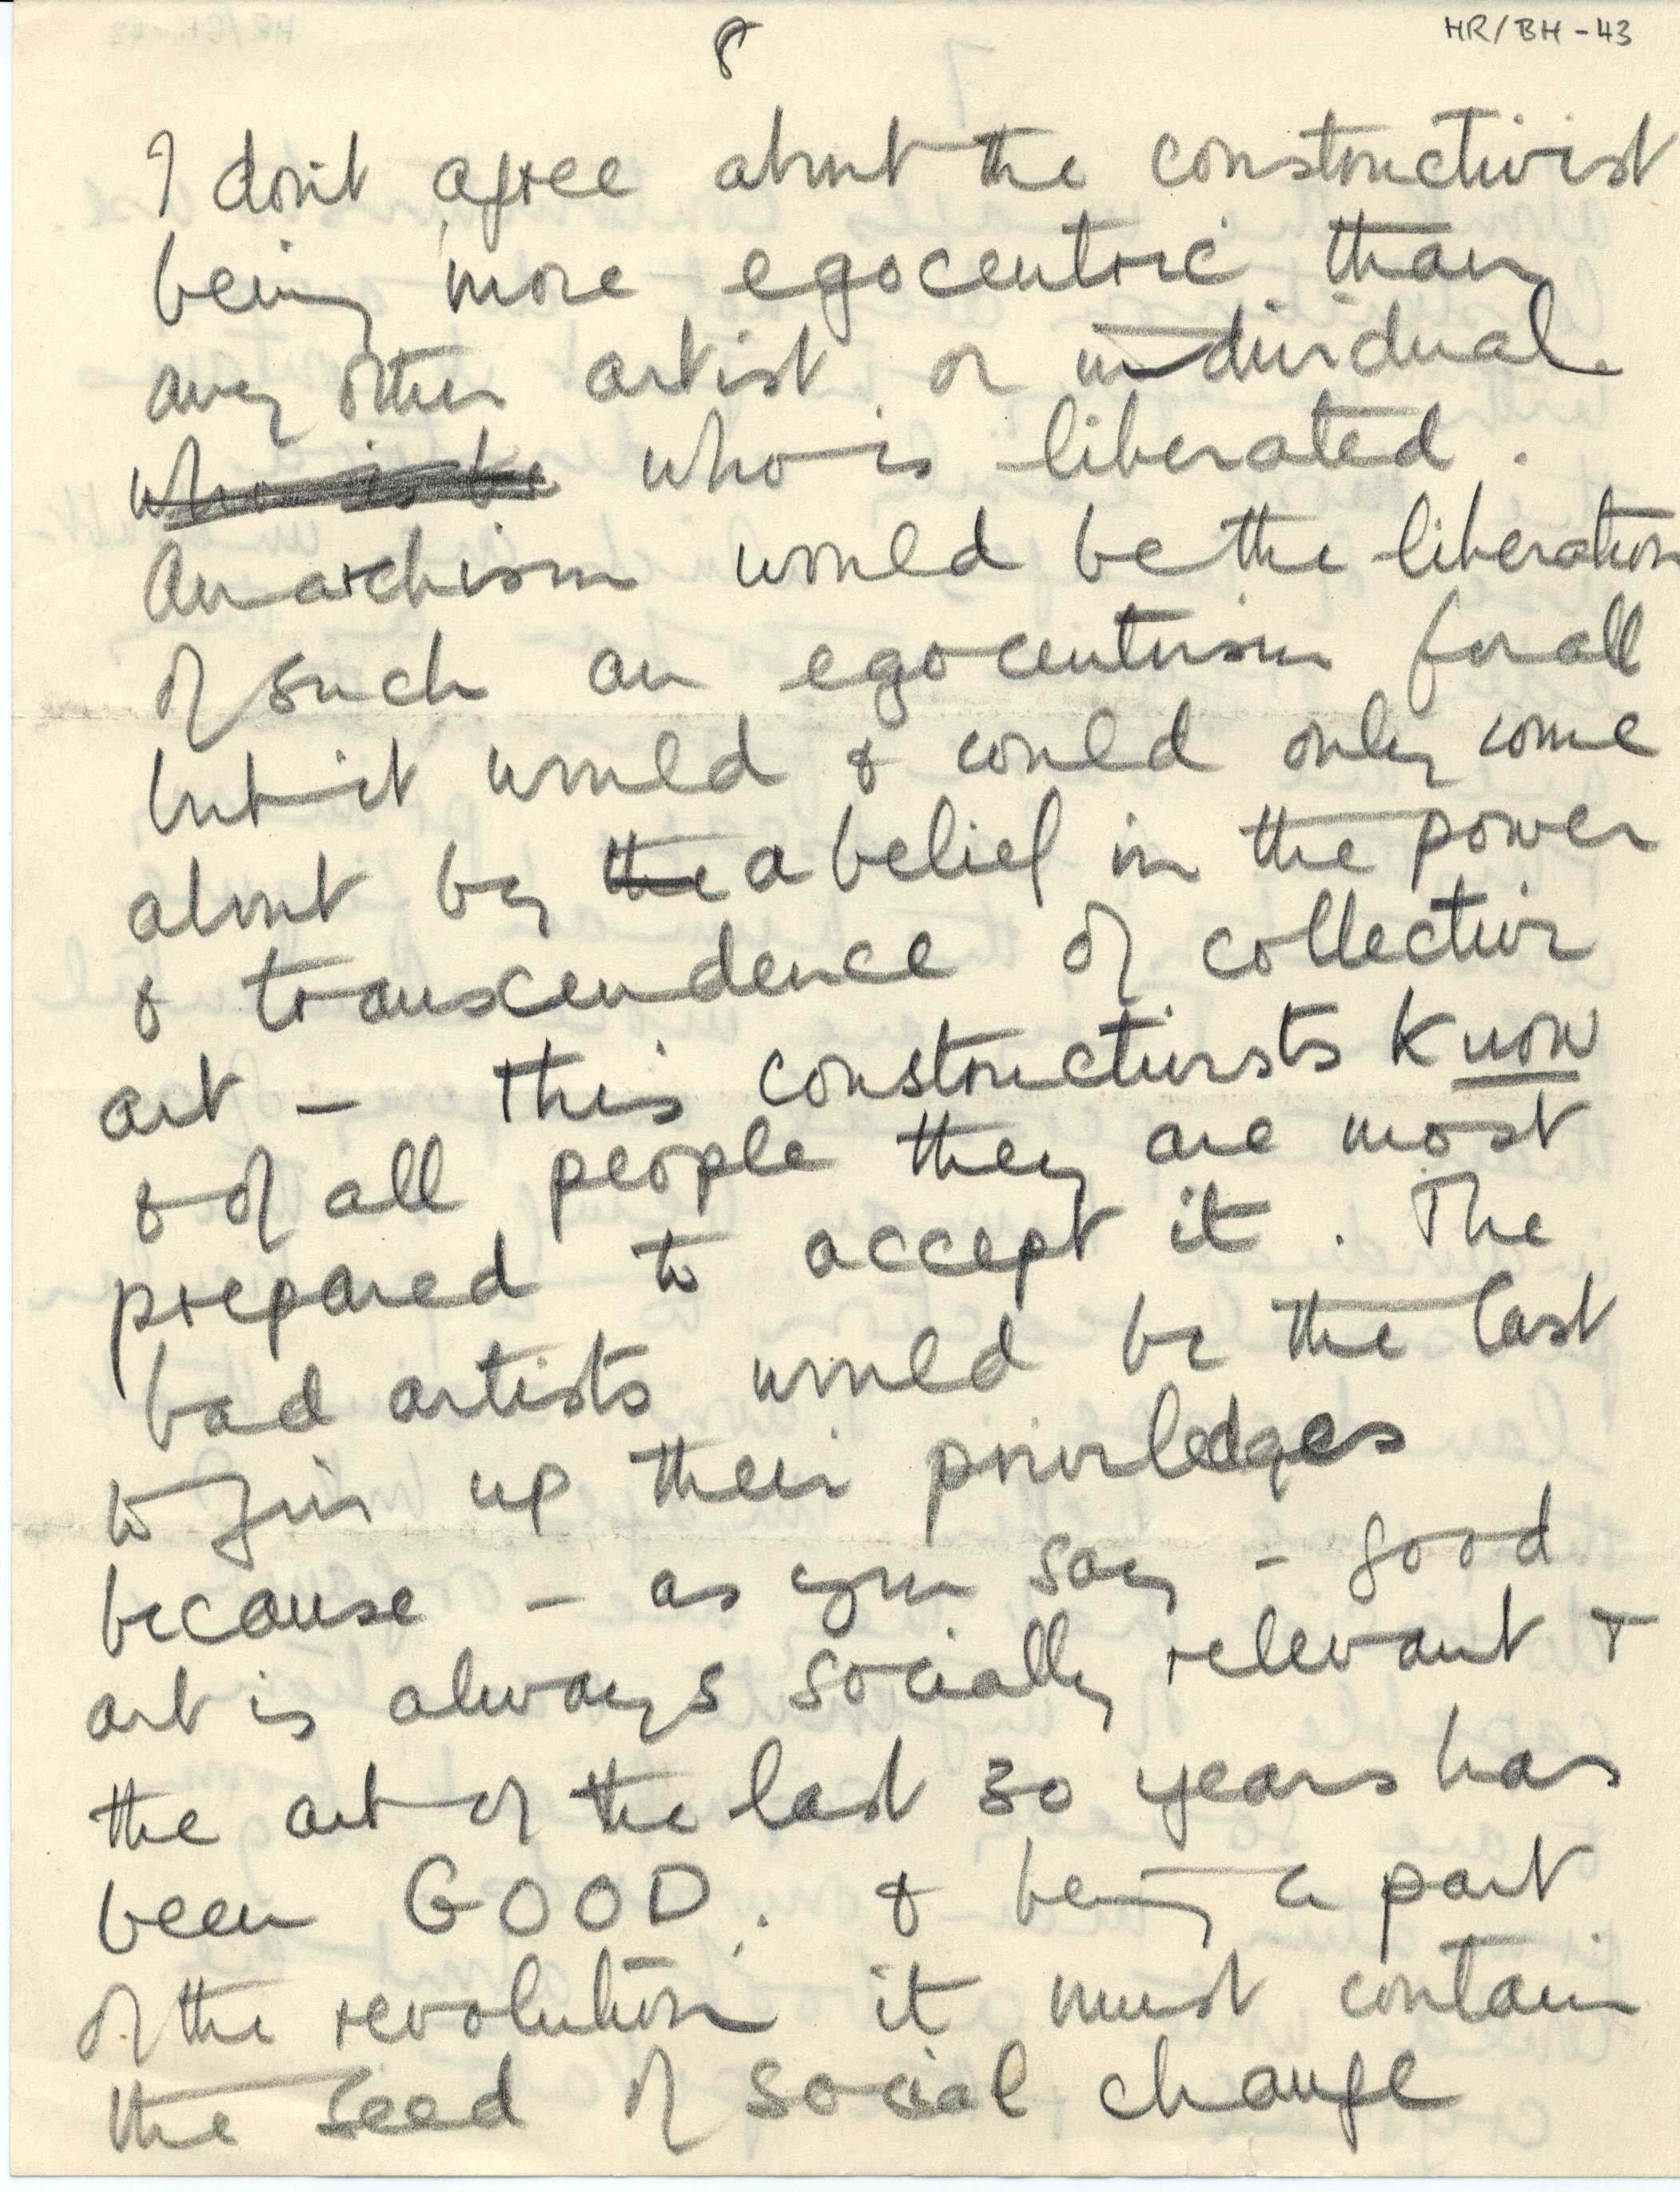 8
HR/BH-43
I don't agree about the constructivist
being more egocentric than
any other artist or individual
who is be who is liberated.
Anarchism would be the liberation
of such an egocentrism for all
but it would & could only come
about by the a belief in the power
& transcendence of collective
art – this constructivists know
& of all people they are most
prepared to accept it. The
bad artists would be the last
to give up their priviledges
because – as you say – good
art is always socially relevant +
the art of the last 30 years has
been GOOD. & being a part
of the revolution it must contain
the seed of social change